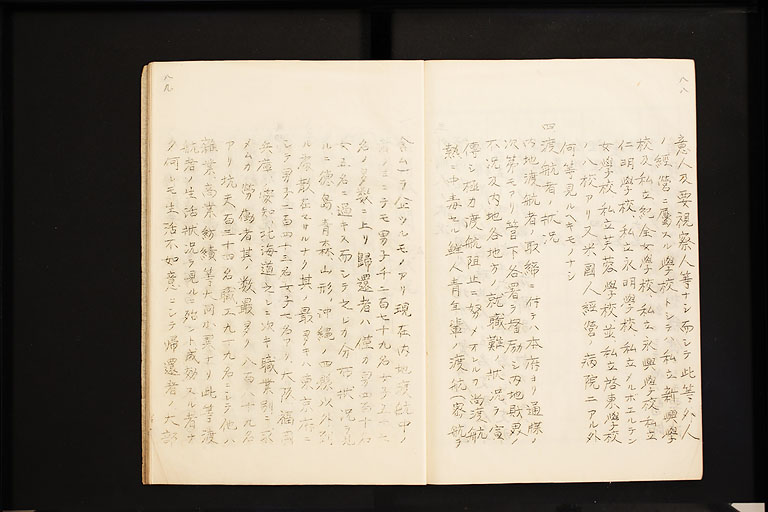 八八
意人及要視察人等ナシ而シテ此等外人
ノ經營ニ屬スル學校トシテハ私立新興學
校及私立紀全女學校、私立永興學校私立
仁明學校、私立永明學校、私立ノルボエルテン
女學校、私立芙蓉學校並私立啓東學校
ノ八校アリ又英國人經營ノ病院ニアル外
何等見ルヘキモノナシ
四 渡航者ノ狀況
内地渡航者ノ取締ニ付テハ本府ヨリ通牒ノ
次第モアリ管下各署ヲ督勵シ内地財界ノ
不況及内地各地方ノ就職難ノ狀況ヲ宣
傳シ極力渡航阻止ニ努メオレルフ當渡航
熱ニ中毒セル鮮人青年輩ノ渡航(密航ヲ
八九
含ム)ヲ企ツルモノアリ現在内地渡航中ノ
者ノミニテモ男子千二百七十九名女子
名ノ多數ニ上リ歸還者ハ僅カ男四百十名
女五名ニ過キス而シテ之レカ分布狀況ヲ見
ルニ德島、青森、山形、沖縄ノ四縣以外到
ル處散在セサルナク其ノ最多キハ東京府ニ
シテ男子二百四十三名女子七名アリ、大阪、福岡
兵庫、愛知、北海道之レニ次キ職業別ニ
メムカ勞働者其ノ數最多ク八百八十九名
アリ坑夫百三十四名職工九十九名ニシテ他ハ
雜業、商業、紡績等大同小異ナリ此等渡
航者ノ生活狀況ヲ視ルニ殆ント成効スル者ナ
ク何レモ生活不如意ニシテ歸還者ノ大部